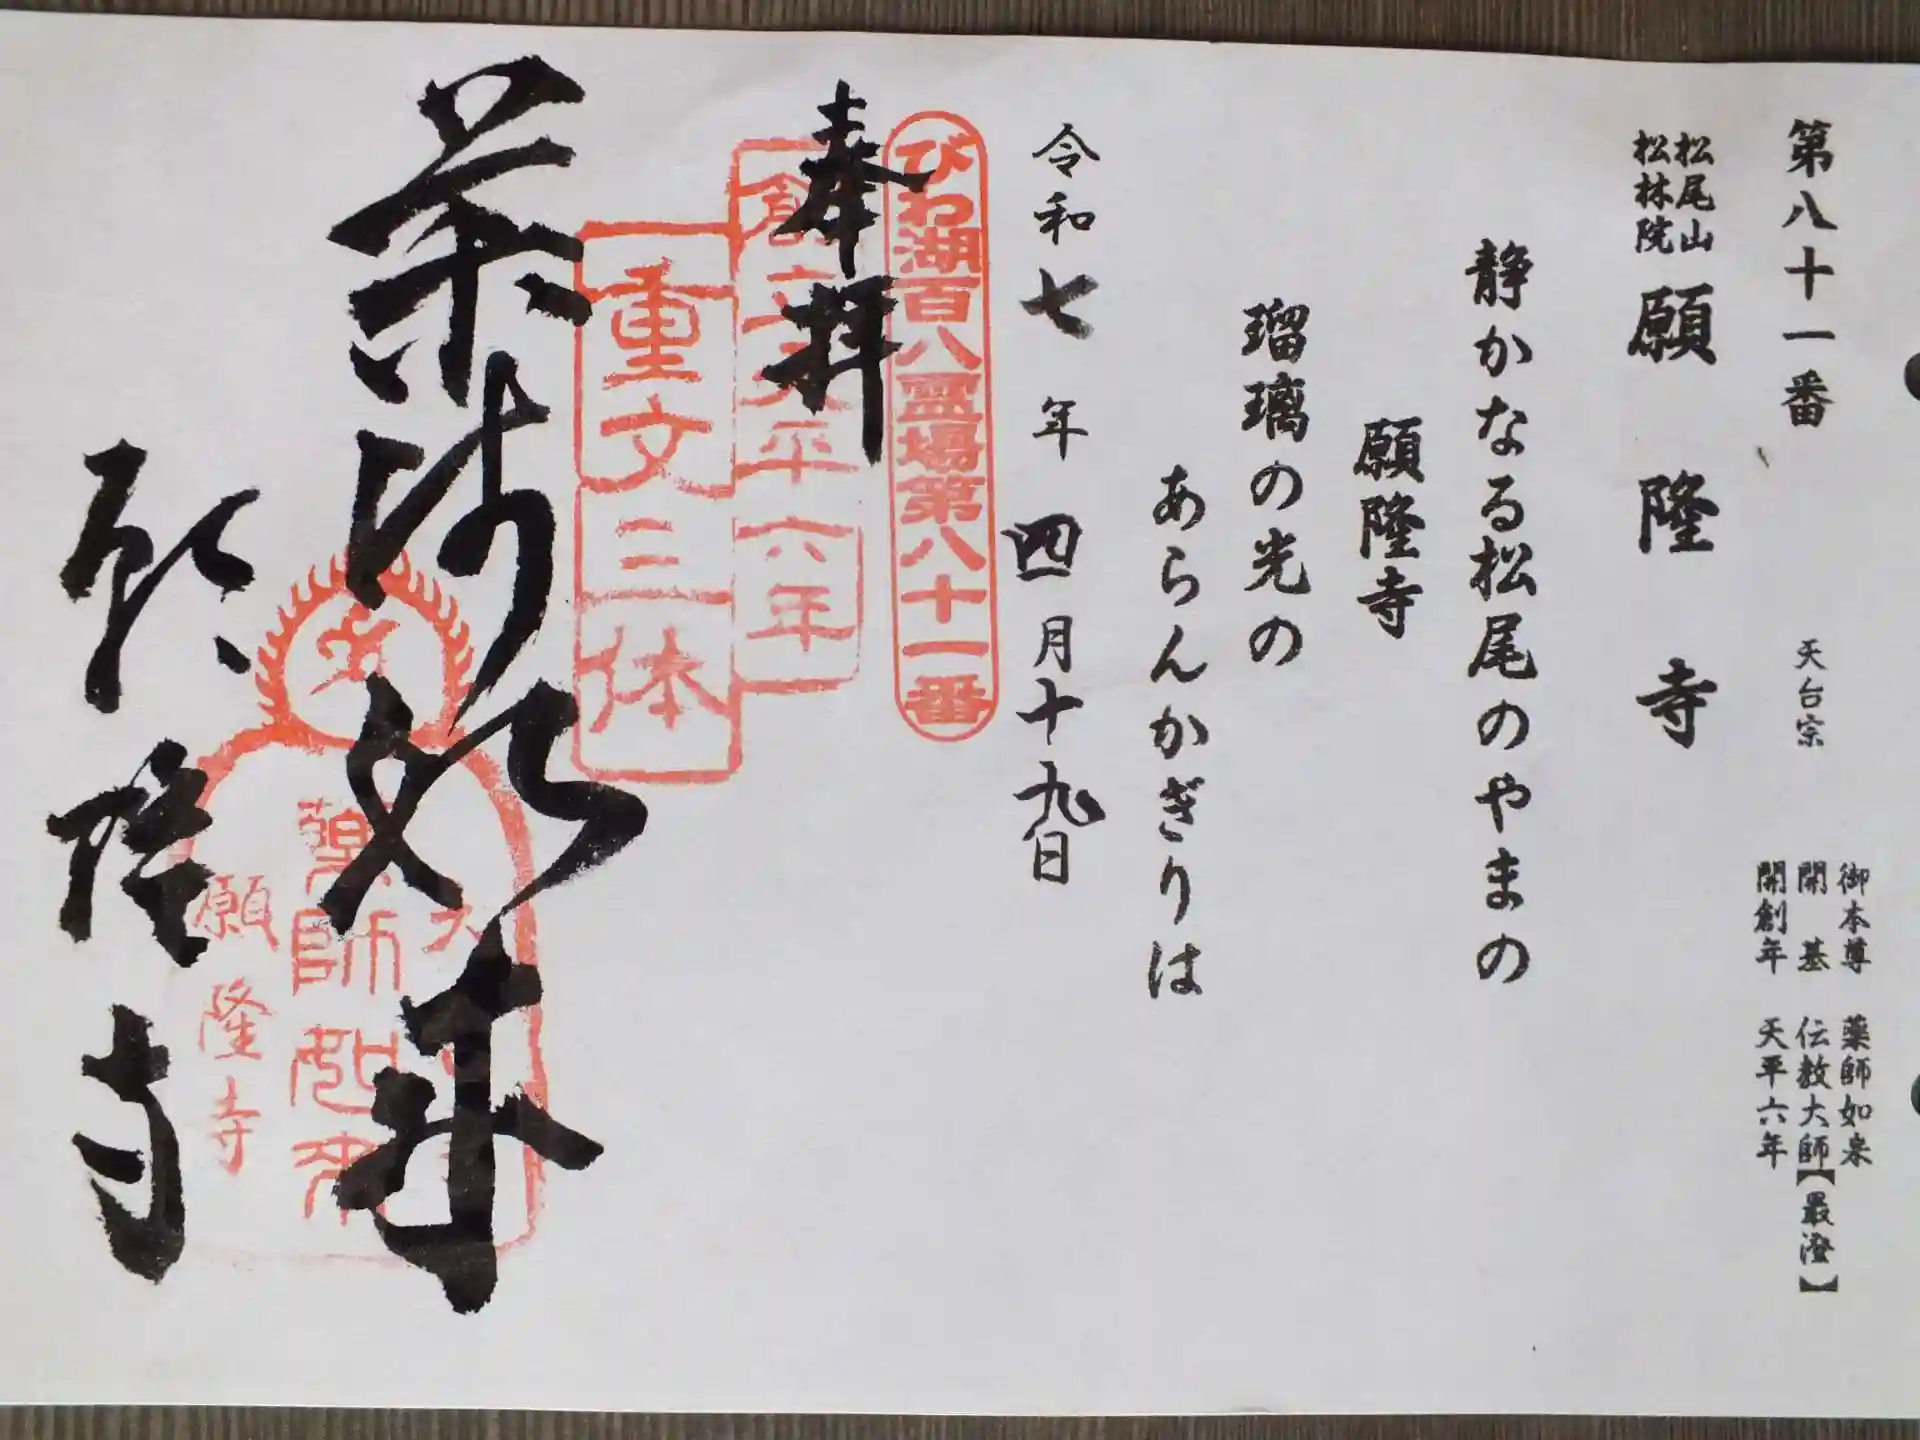 第八十一番
天台宗
御本尊 薬師如来
開基 伝教大師【最澄】
開創年 天平六年
松尾山
松林院
願隆寺
静かなる松尾のやまの
願隆寺
瑠璃の光の
あらんかぎりは
令和七年四月十九日
びわ湖百八霊場第八十一番
奉拝
創立天平六年
重文三体
薬師如来
薬師如来
願隆寺
願隆寺